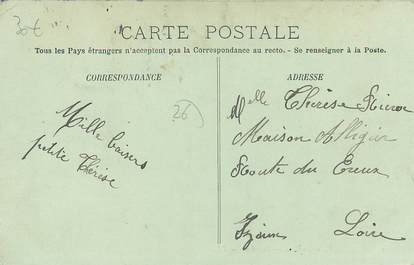 30€
CARTE POSTALE
Tous les Pays étrangers n'acceptent pas la Correspondance au recto. - Se renseigner à la Poste.
CORRESPONDANCE
ADRESSE
26
Mille baisers
petite Thérèse
Melle Thérèse
Maison
Route du Creux
Loire